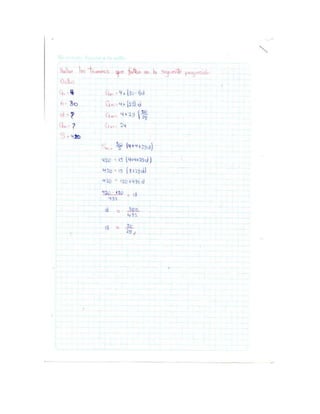 Hallar los términos que faltan en la siguiente progresión
Datos
a₁ = 4
n = 30
d = ?
aₙ = ?
S = 420
aₙ = 4 + (30-1)d
aₙ = 4 + (29)d
aₙ = 4 + 29 (20/29)
aₙ = 24
Sₙ = 30/2 (4+4+29d)
420 = 15 (4+4+29d)
420 = 15 (8+29d)
420 = 120+435d
420-120/435 = d
d = 300/435
d = 20/29